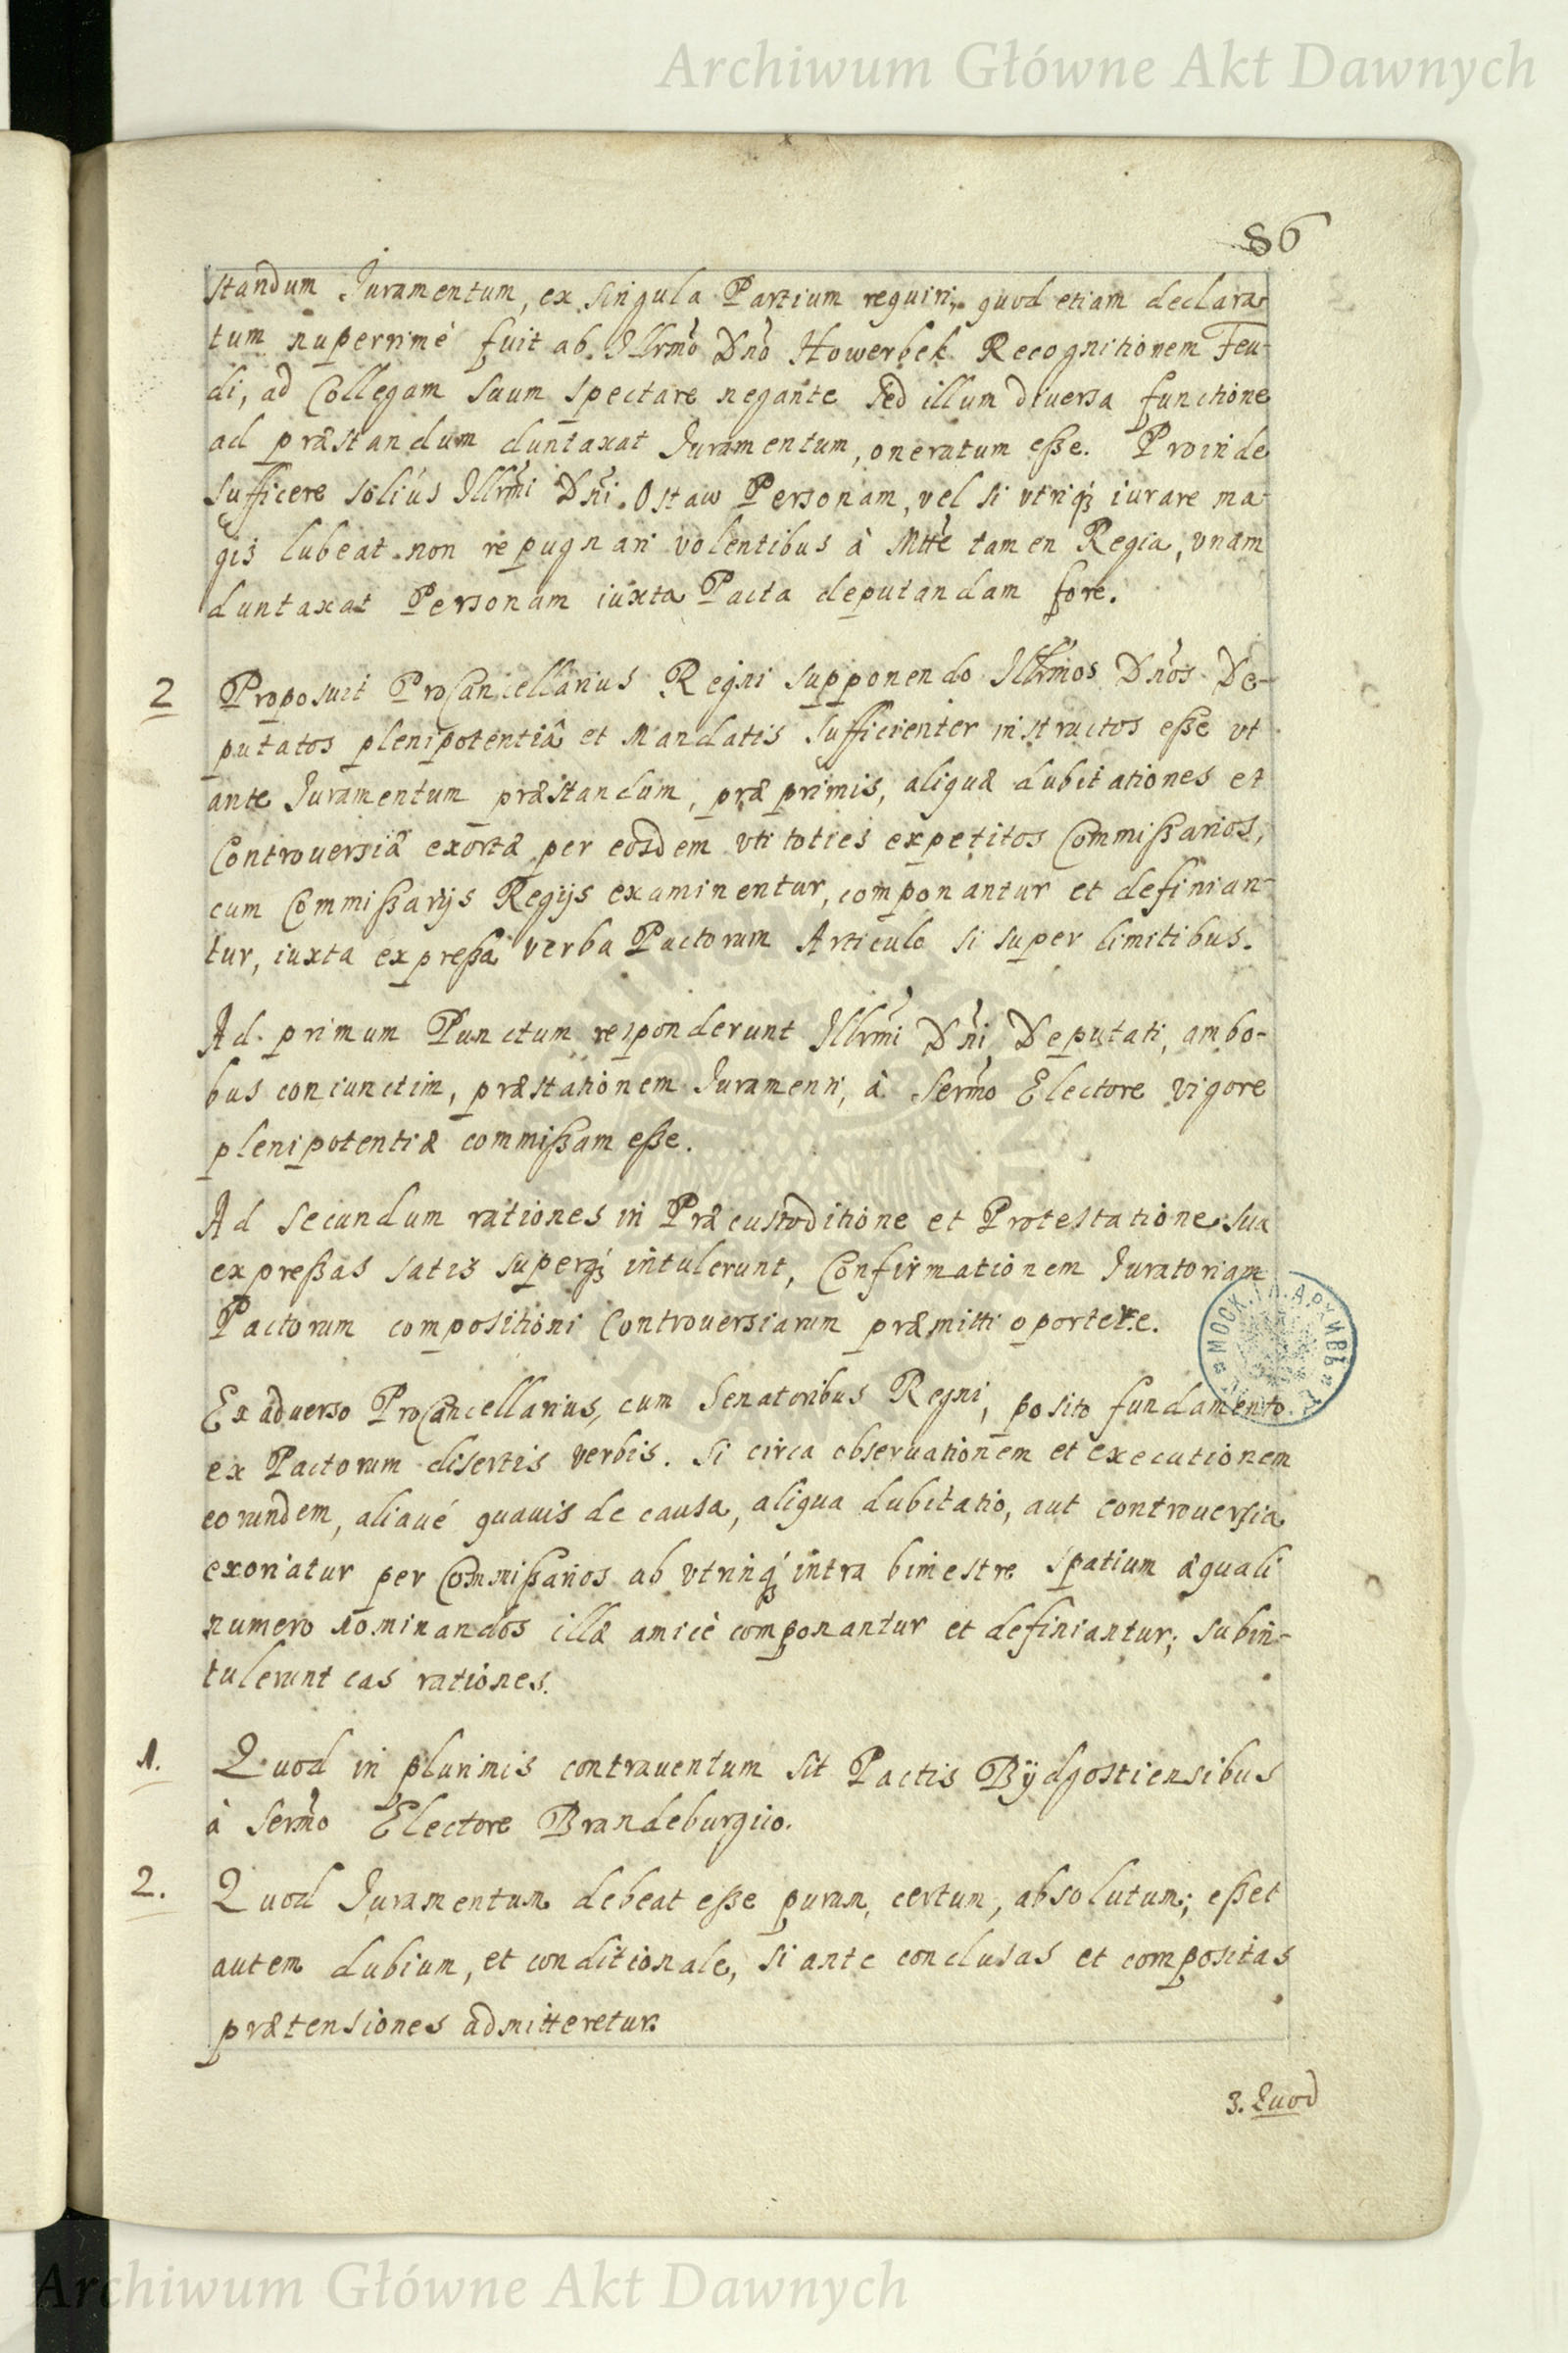 Archiwum Główne Akt Dawnych
86
standum Juramentum, ex singula Partium requiri, quod etiam declara-
tum nuperrimè fuit ab Illrmo Dno Howerbek Recognitionem Feu-
di, ad Collegam suum spectare negante sed illum diuersa functione
ad præstandum duntaxat Juramentum, oneratum eße. Proinde
sufficere solius Illrmi Dni Ostaw Personam, vel si vtriq; iurare ma-
gis lubeat non repugnari volentibus à Mtte tamen Regia, vnam
duntaxat Personam iuxta Pacta deputandam fore.
2 Proposuit ProCancellarius Regni supponendo Illrmos Dnos De-
putatos plenipotentiâ et Mandatis sufficienter instructos eße vt
ante Juramentum præstandum, præ primis, aliquæ dubitationes et
Controuersiæ exortæ per eosdem vti toties expetitos Commißarios,
cum Commißarijs Regijs examinentur, componantur et definian-
tur, iuxta expreßa verba Pactorum Articulo si super limitibus.
Ad primum Punctum responderunt Illrmi Dni Deputati, ambo-
bus coniunctim, præstationem Juramenti, à Sermo Electore vigore
plenipotentiæ commißam eße.
Ad secundum rationes in Præcustoditione et Protestatione sua
expreßas satis superq; intulerunt, Confirmationem Juratoriam
Pactorum compositioni Controuersiarum præmitti oportere.
МОСК. АРХИВЪ
Ex aduerso ProCancellarius, cum Senatoribus Regni, posito fundamento
ex Pactorum disertis verbis. Si circa obseruationem et executionem
eorundem, aliaué quauis de causa, aliqua dubitatio, aut controuersia
exoriatur per Commißarios ab vtrinq; intra bimestre spatium æquali
numero nominandos illæ amicè componantur et definiantur; subin-
tulerunt eas rationes.
1. Quod in plurimis contrauentum sit Pactis Bÿdgostiensibus
à Sermo Electore Brandeburgico.
2. Quod Juramentum debeat eße purum, certum, absolutum; eßet
autem dubium, et conditionale, si ante conclusas et compositas
prætensiones admitteretur.
3. Quod
Archiwum Główne Akt Dawnych